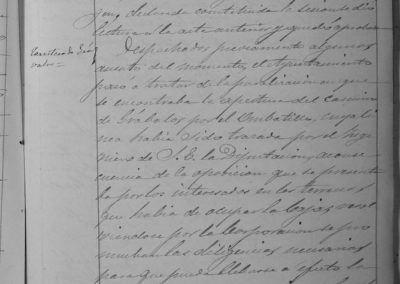 gen, declarada constituida la sesion se dio
lectura a la acta anterior y quedó aprobada
Carretera de Grá-
valos =
Despachados previamente algunos
asuntos del momento, el Ayuntamiento
pasó a tratar de la paralizacion que
se encontraba la apertura del camino
de Grábalos por el Combatillo, cuya lí
nea habia sido trazada por el Inge
niero de S. E. la Diputacion, a conse
cuencia de la oposicion que se presenta
ba por los interesados en los terrenos
que habia de ocupar la Caja; resol
viendose por la Corporacion se pro
muevan las diligencias necesarias
para que pueda llevarse a efecto la